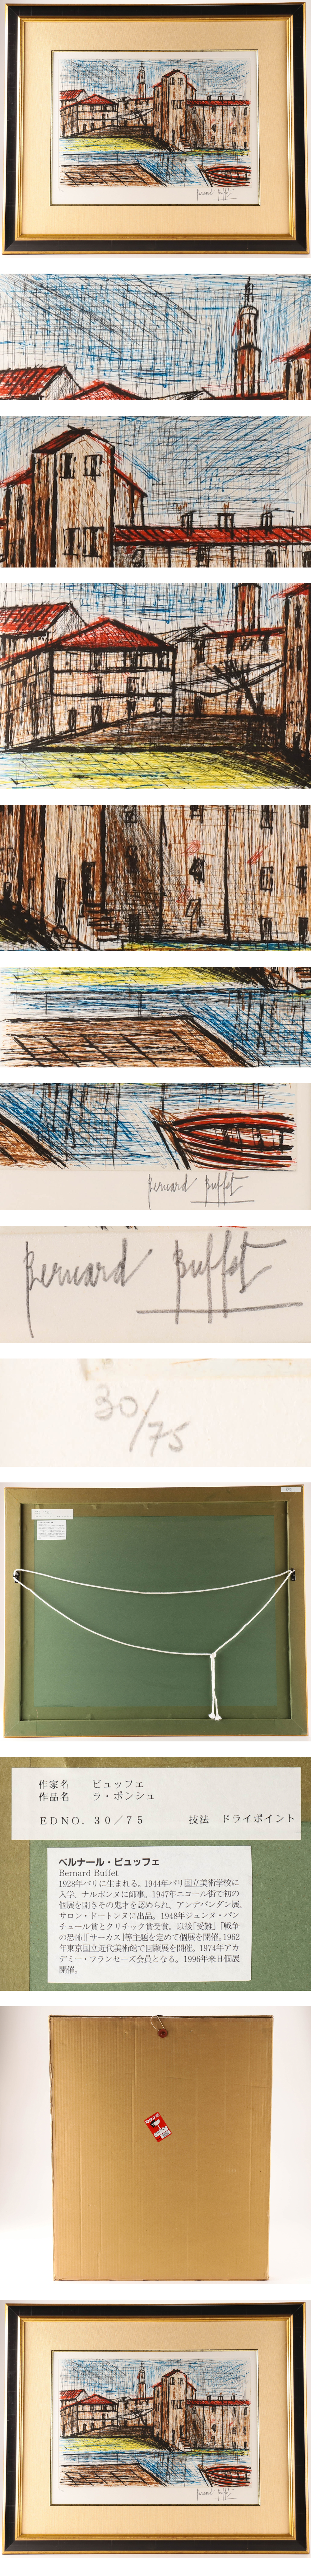 Bernard Buffet
Bernard Buffet
30/75
作家名 ビュッフェ
作品名 ラ・ポンシュ
EDNO. 30/75 技法 ドライポイント
ベルナール・ビュッフェ
Bernard Buffet
1928年パリに生まれる。1944年パリ国立美術学校に
入学、ナルボンヌに師事。1947年ニコール街で初の
個展を開きその鬼才を認められ、アンデパンダン展、
サロン・ドートンヌに出品。1948年ジュンヌ・パン
チュール賞とクリチック賞受賞。以後「受難」「戦争
の恐怖」「サーカス」等主題を定めて個展を開催。1962
年東京国立近代美術館で回顧展を開催。1974年アカ
デミー・フランセーズ会員となる。1996年来日個展
開催。
Bernard Buffet